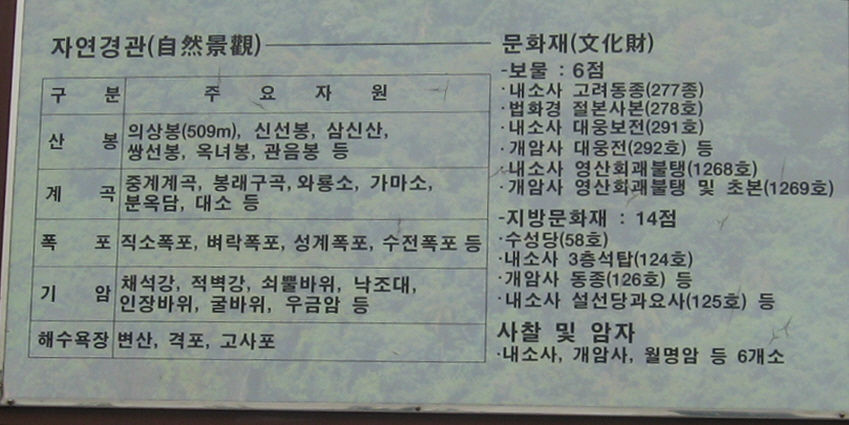 자연경관(自然景觀)
구 분 주 요 자 원
산 봉 의상봉(509m), 신선봉, 삼신산,
쌍선봉, 옥녀봉, 관음봉 등
계 곡 중계계곡, 봉래구곡, 와룡소, 가마소,
분옥담, 대소 등
폭 포 직소폭포, 벼락폭포, 성계폭포, 수전폭포 등
기 암 채석강, 적벽강, 쇠뿔바위, 낙조대,
인장바위, 굴바위, 우금암 등
해수욕장 변산, 격포, 고사포
문화재(文化財)
-보물 : 6점
·내소사 고려동종(277종)
·법화경 절본사본(278호)
·내소사 대웅보전(291호)
·개암사 대웅전(292호) 등
·내소사 영산회괘불탱(1268호)
·개암사 영산회괘불탱 및 초본(1269호)
-지방문화재 : 14점
·수성당(58호)
·내소사 3층석탑(124호)
·개암사 동종(126호) 등
·내소사 설선당과요사(125호) 등
사찰 및 암자
·내소사, 개암사, 월명암 등 6개소